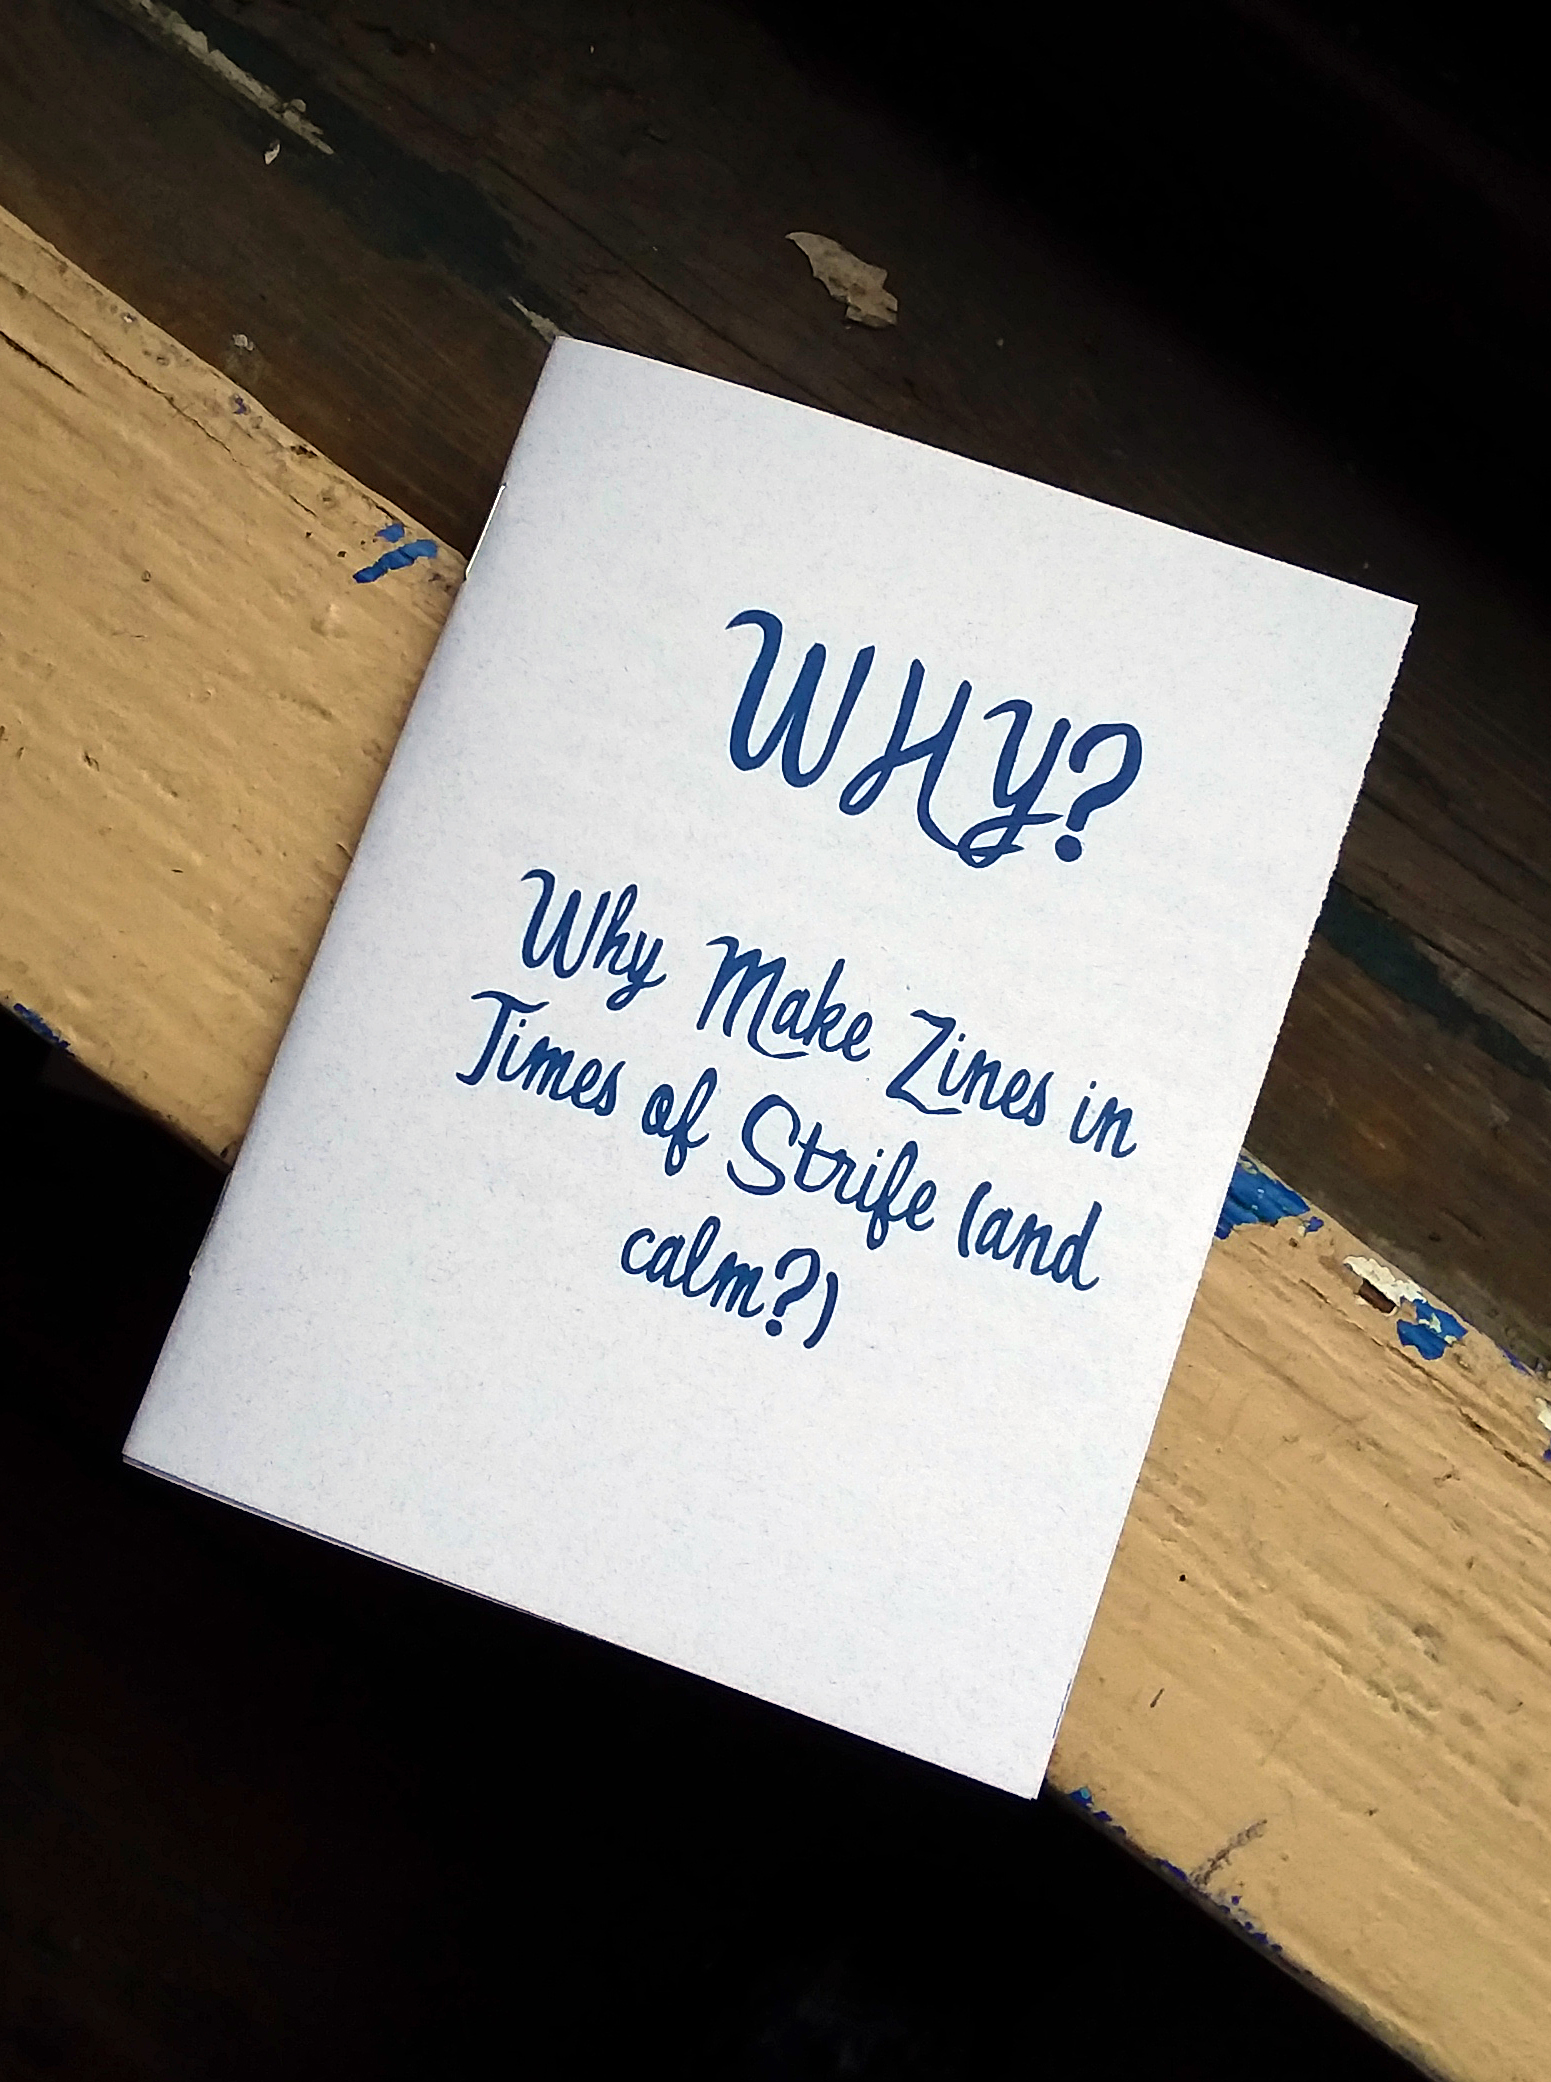 WHY?
Why Make Zines in
Times of Strife (and
calm?)